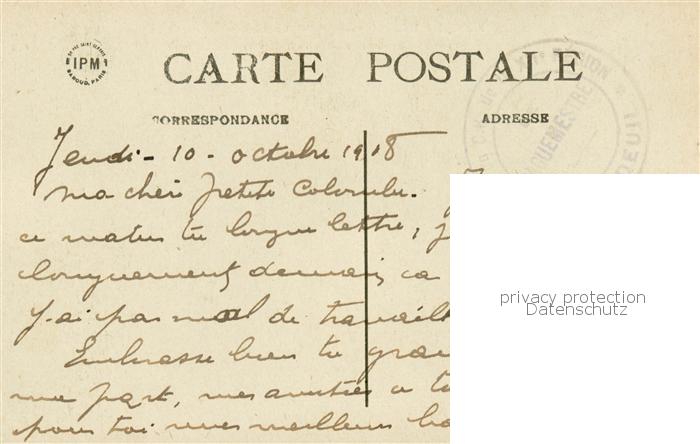 IPM
CARTE POSTALE
CORRESPONDANCE ADRESSE
VAGUEMESTRE
Jeudi - 10 - octobre 1918
Ma chère petite Colombe.
ce matin ta longue lettre, j
longuement demain, ca
J'ai pas mal de travail
Embrasse bien ta gran
ma part, mes amitiés a ta
pour toi mes meilleurs ba
privacy protection
Datenschutz